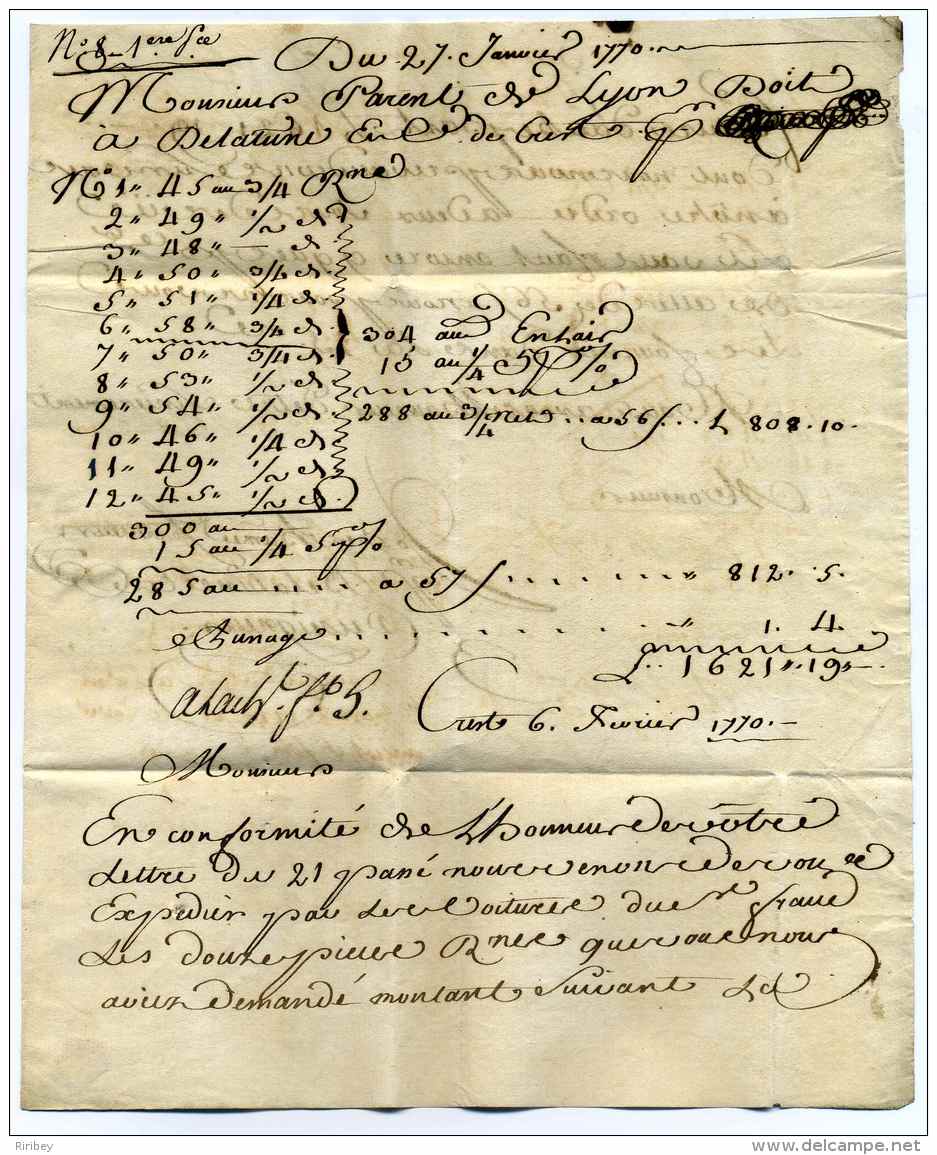 N° 8 1ere f.ce
Du 27. Janvier 1770.
Monsieur Parent de Lyon Doit
à Delatune En C.e de Crest p
N° 1 " 45 au 3/4 Rnes
2 " 49 " 1/2 d
3 " 48 " — d
4 " 50 " 3/4 d
5 " 51 " 1/4 d
6 " 58 " 3/4 d
7 " 50 " 3/4 d
8 " 53 " 1/2 d
9 " 54 " 1/2 d
10 " 46 " 1/4 d
11 " 49 " 1/2 d
12 " 45 " 1/2 d
304 au
15 au 1/4 5 p %
288 au 3/4 net .. a 56 s... L 808.10
300 au
15 au 1/4 5 p %
285 au .... a 57 s ........ " 812.5.
Aunage .............. " 1.4.
L.. 1621 " 19 "
Crest 6. Fevrier 1770.
Monsieur
En conformité de L'honneur de votre
Lettre du 21 passé nous venons de vous
Expedier par Les Voitures du Sr.
Les douze pieces Rnes que vous nous
aviez demandé montant Suivant La
Riribey
www.delcampe.net